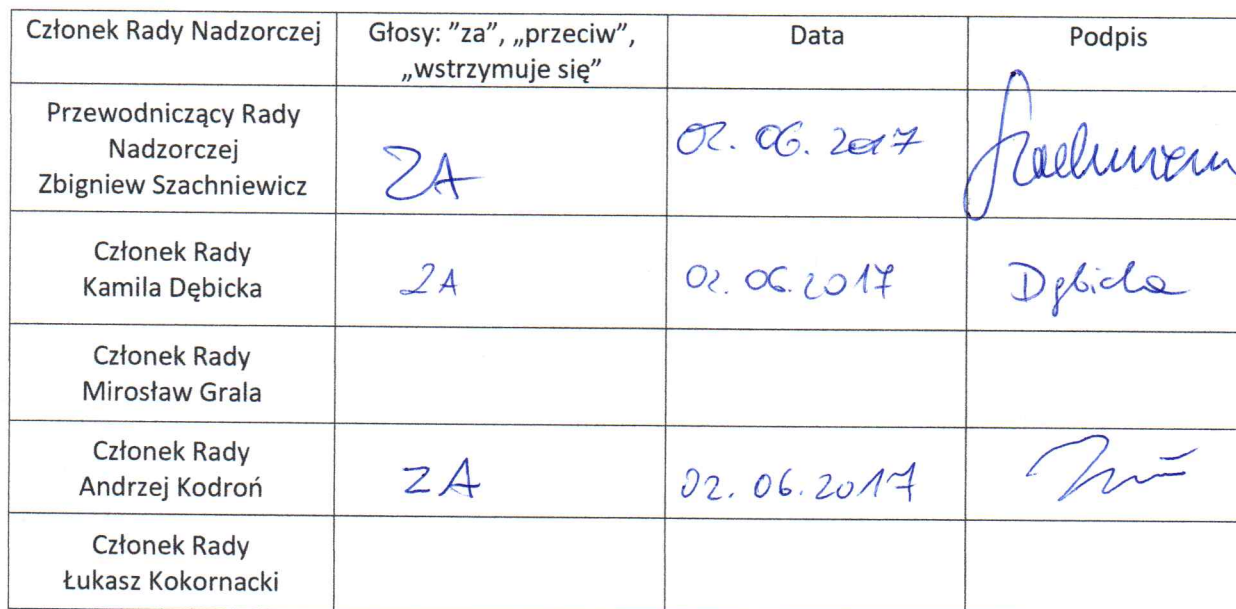 Członek Rady Nadzorczej
Głosy: ”za”, „przeciw”,
„wstrzymuje się”
Data
Podpis
Przewodniczący Rady
Nadzorczej
Zbigniew Szachniewicz
ZA
02.06.2017
Członek Rady
Kamila Dębicka
ZA
02.06.2017
Dębicka
Członek Rady
Mirosław Grala
Członek Rady
Andrzej Kodroń
ZA
02.06.2017
Członek Rady
Łukasz Kokornacki